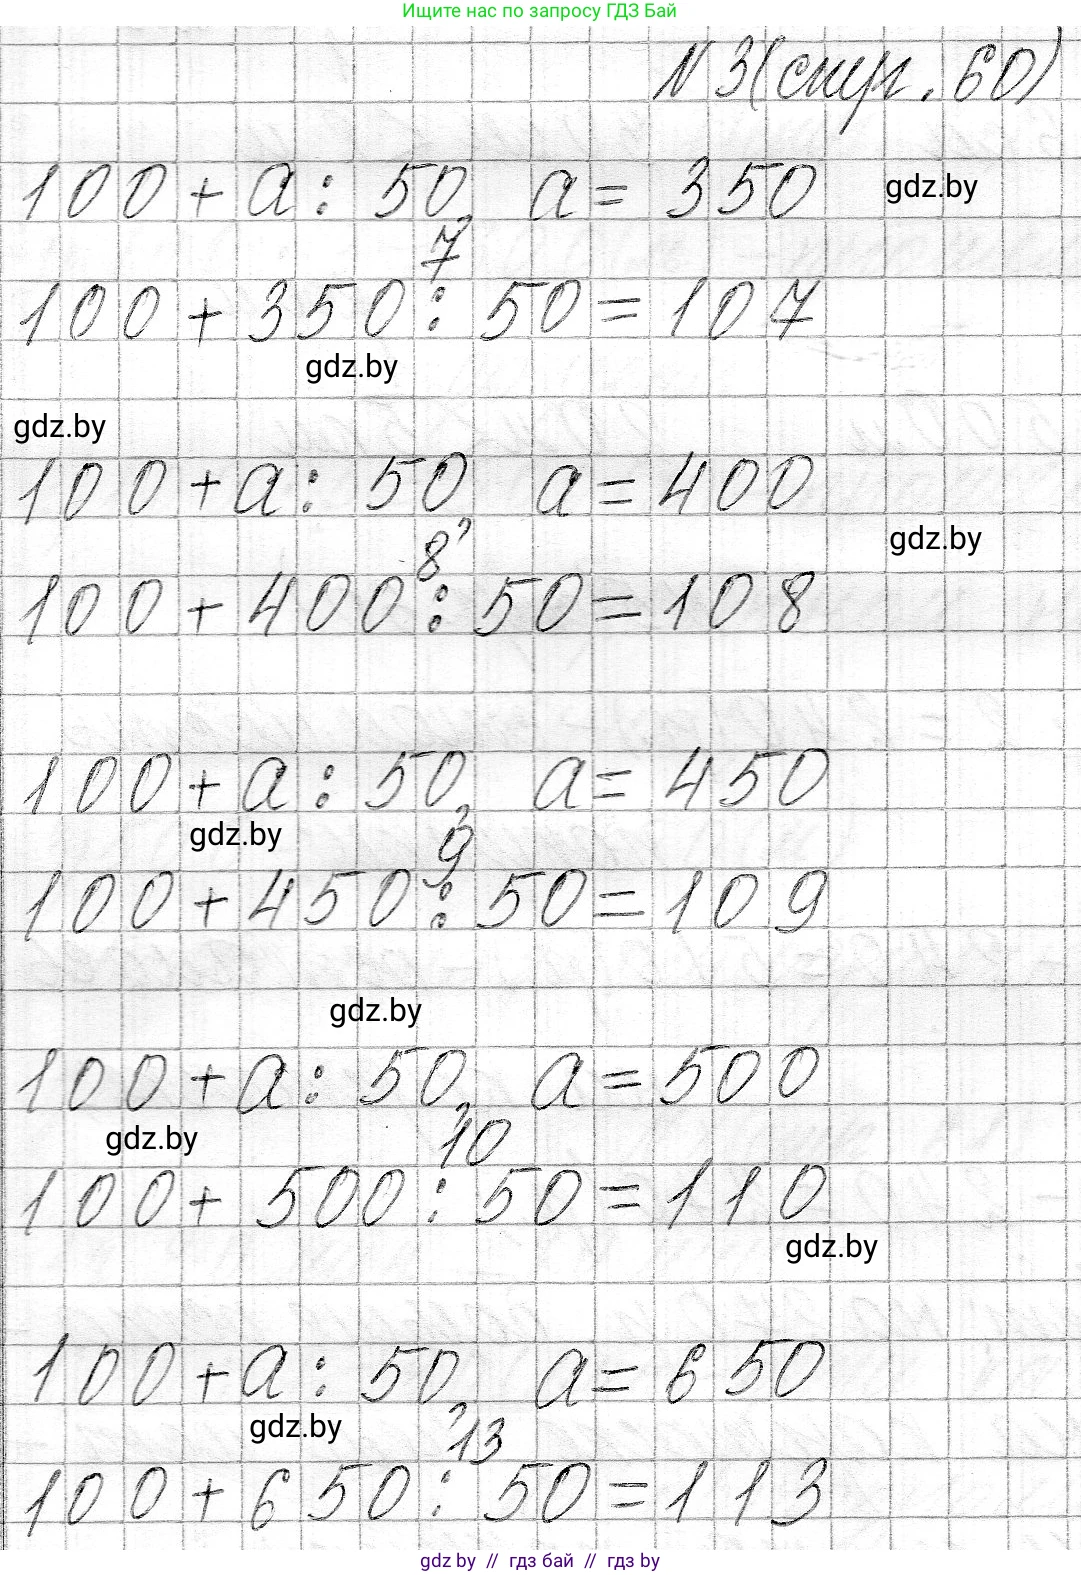 Ищите нас по запросу ГДЗ Бай
N 3 (стр. 60)
100 + a : 50, a = 350
gdz.by
7
100 + 350 : 50 = 107
gdz.by
gdz.by
100 + a : 50, a = 400
gdz.by
8
100 + 400 : 50 = 108
100 + a : 50, a = 450
gdz.by
9
100 + 450 : 50 = 109
gdz.by
100 + a : 50, a = 500
gdz.by
10
100 + 500 : 50 = 110
gdz.by
100 + a : 50, a = 650
gdz.by
13
100 + 650 : 50 = 113
gdz by // гдз бай // гдз by